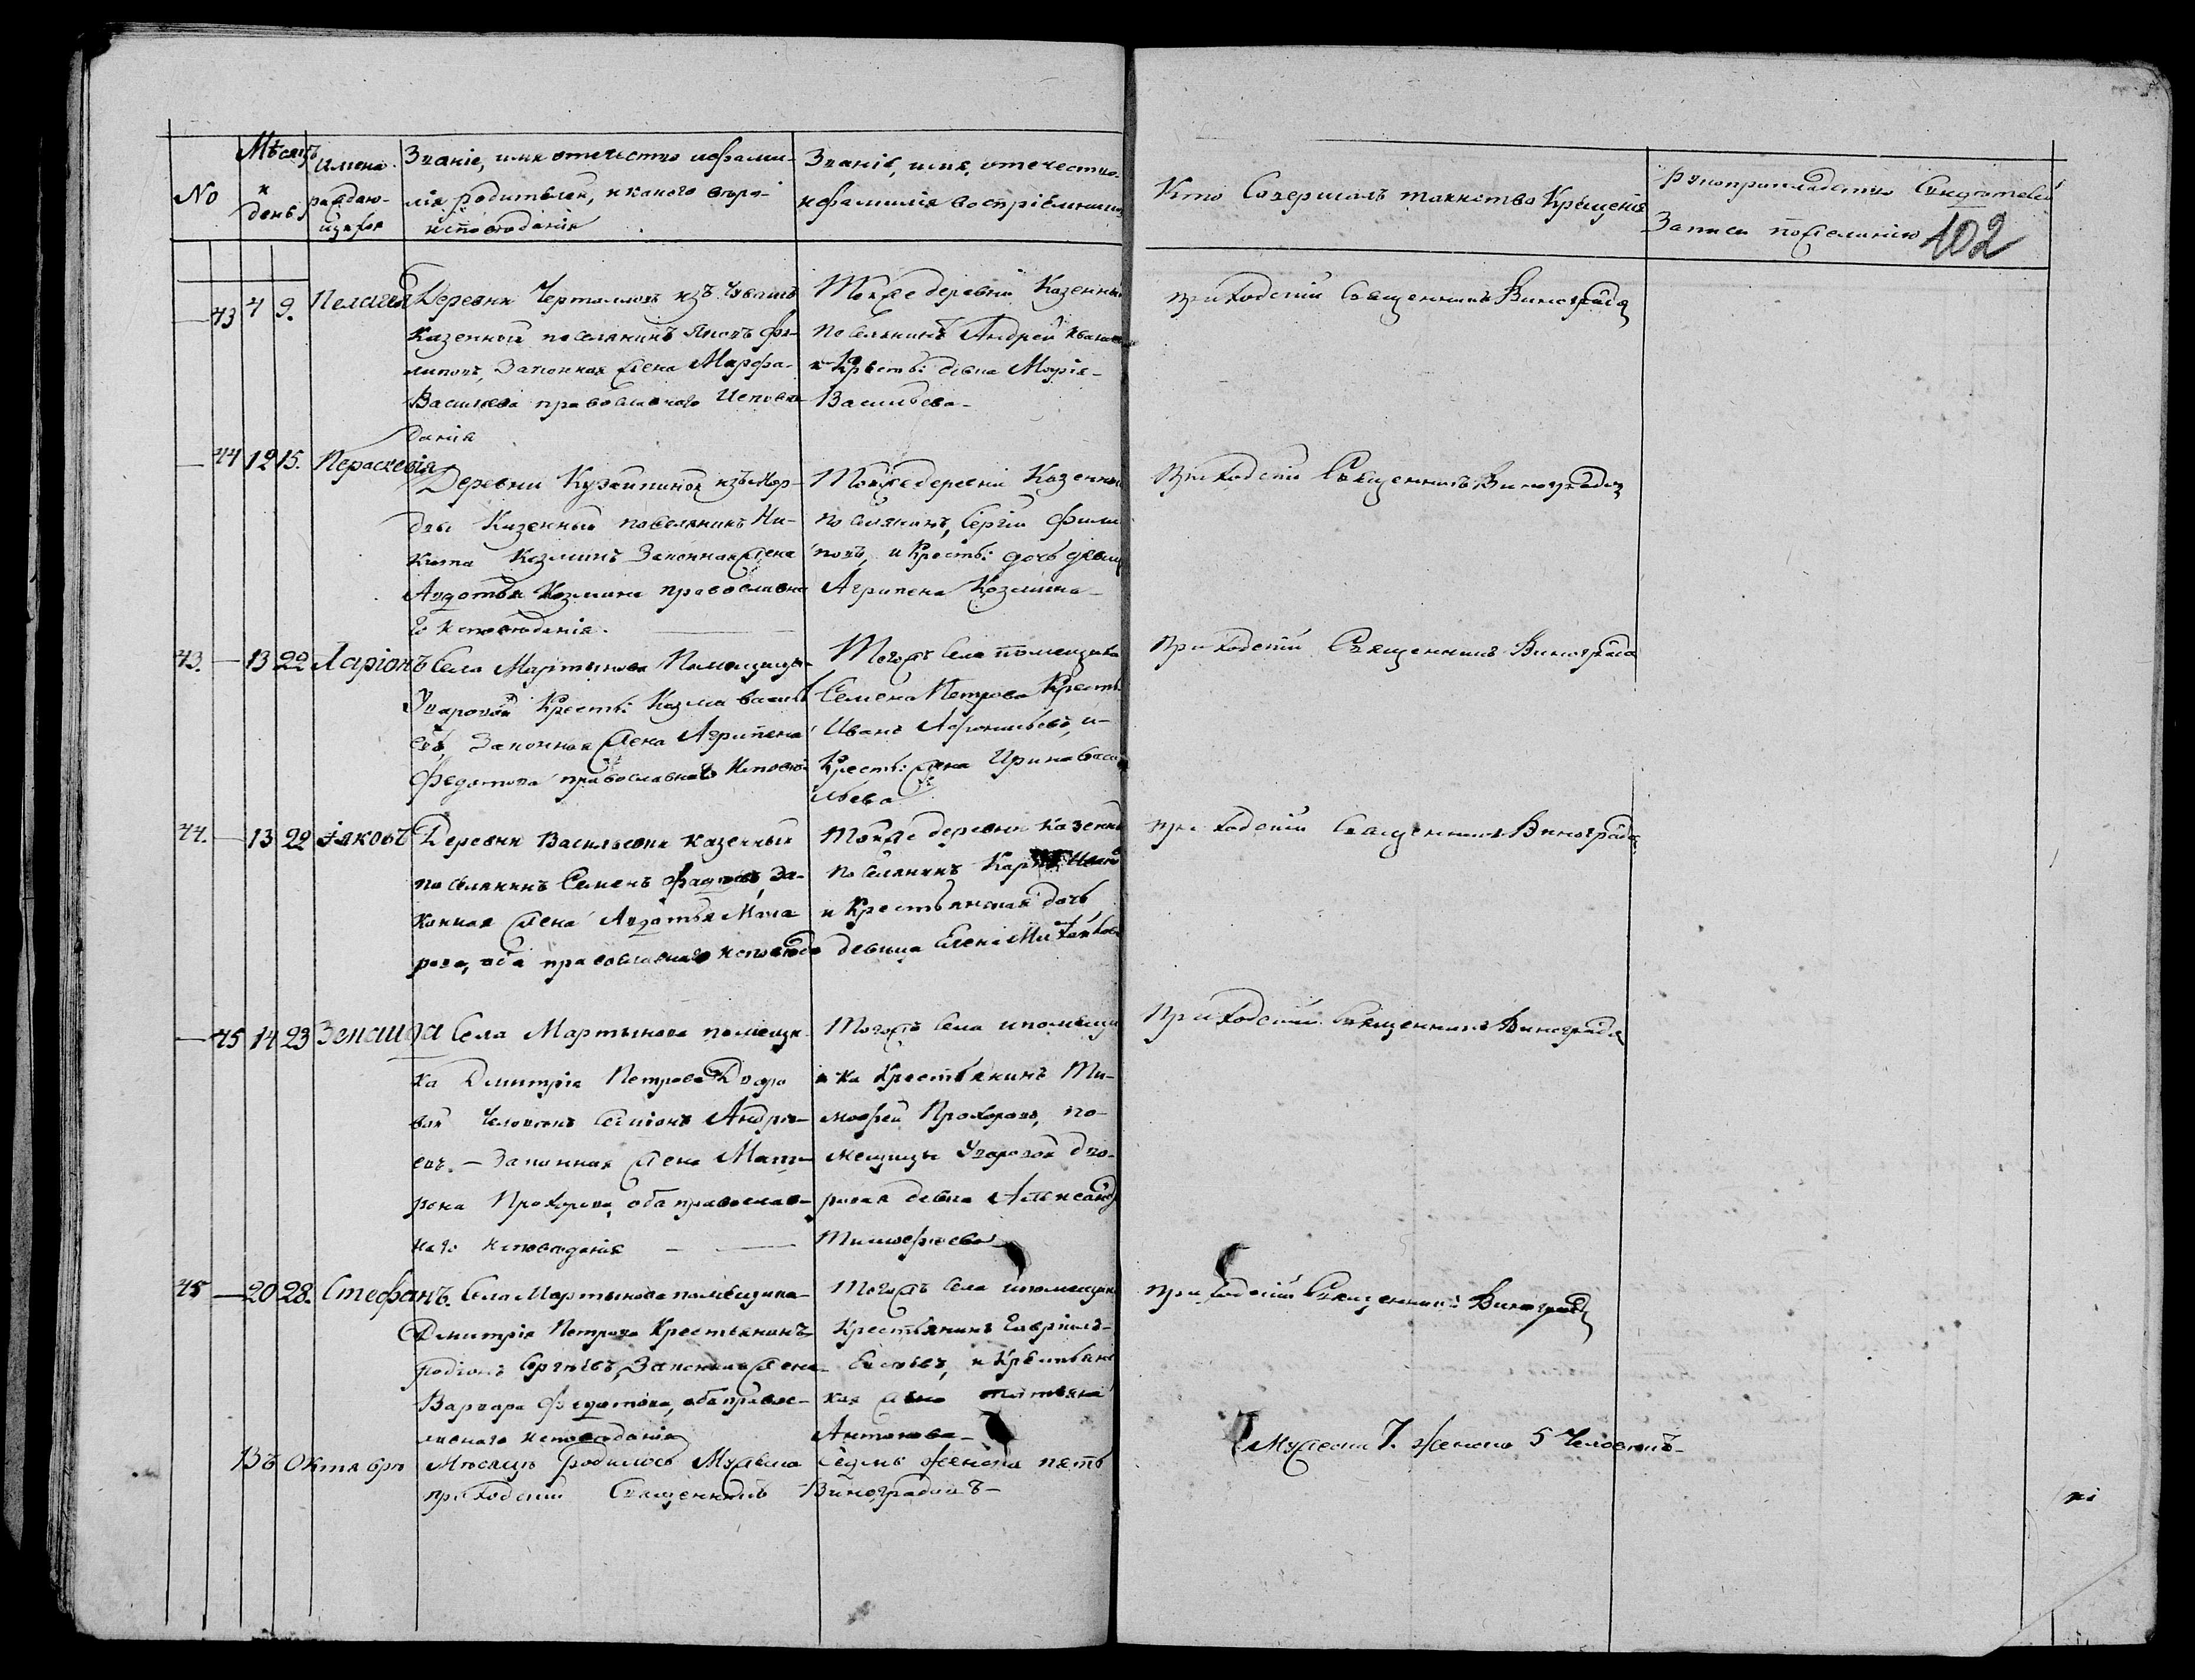 No
Мѣсяцъ и день
Имена раждающихся
Званіе, имя отечество и фамилія родителей, и какого вѣроисповѣданія
Званіе, имя, отечество и фамилія воспріемниковъ
Кто совершалъ таинство Крещенія
Рукоприкладство свидѣтелей
записи по желанію
102
— 43 4 9. Пелагея
Деревни Черталлов изъ Чувашъ
Казенный поселянинъ Яковъ Фи-
липовъ, Законная жена Марфа
Васильева православнаго Исповѣ-
данія
Тойже деревни Казенный
поселянинъ Андрей
и Крестьь: девка Марія
Васильева
приходскій Священникъ Виноградов
— 44 12 15. Параскевія
Деревни Кузайкиной изъ Мор-
двы Казенный поселянинъ Ни-
кита Козминъ Законная жена
Авдотья Козмина православна
го исповѣданія.
Тойже деревни Казенный
поселянинъ, Сергій Фили
повъ, и Крестьь: дочь девица
Агрипена Козмина
приходскій Священникъ Виноградов
43. — 13 22 Ларіонъ
Села Мартынова Помещицы
Уваровой Крестьь: Козма Василь
евъ, Законная жена Агрипена
Федотова православнаго Исповѣ
Тогожъ Села помещика
Семена Петрова Крестьь
Иванъ Афонасьевъ, и
Крестьь: жена Ирина Васи
льева
приходскій Священникъ Виноградов
44. — 13 22 Іяковъ
Деревни Васильевки казенный
поселянинъ Семенъ Фадѣевъ, За-
конная жена Авдотья Мака
рова, оба православнаго исповѣда
Тойже деревни Казенны
поселянинъ Карпъ Ивано
и Крестьянская дочь
девица Елена Михайлова
приходскій Священникъ Виноградов
— 45 14 23 Зенаида
Села Мартынова помещи-
ка Дмитрія Петрова Дворо
вой Человекъ Семіонъ Андре-
евъ. — Законная жена Мат-
рена Прохорова, оба православ-
наго исповѣданія
Тогожъ Села и помещи
ка Крестьянинъ Ти-
мофей Прохоровъ, по-
мещицы Уваровой дво-
ровая девка Александ
Тимофеева
приходскій Священникъ Виноградов
45 — 20 28. Стефанъ.
Села Мартынова помещика
Дмитрія Петрова Крестьянинъ
Родіонъ Сергѣевъ, Законная жена
Варвара Федотова, оба правос-
лавнаго исповѣданія
Тогожъ Села и помещика
Крестьянинъ Гаврилъ
и Крестьянс
кая жена Татьяна
Антонова
приходскій Священникъ Виноградов
Въ Октябрѣ Мѣсяцѣ родилось Мужеска седмь женска пять
Мужеска 7. женска 5 Человекъ
приходскій Священникъ Виноградовъ